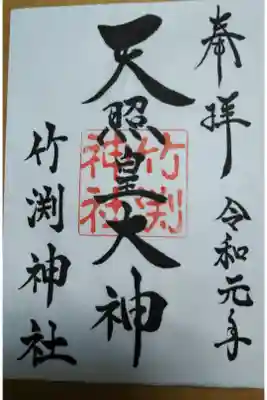 奉拝
令和元年
天照皇大神
竹渕
神社
竹渕神社